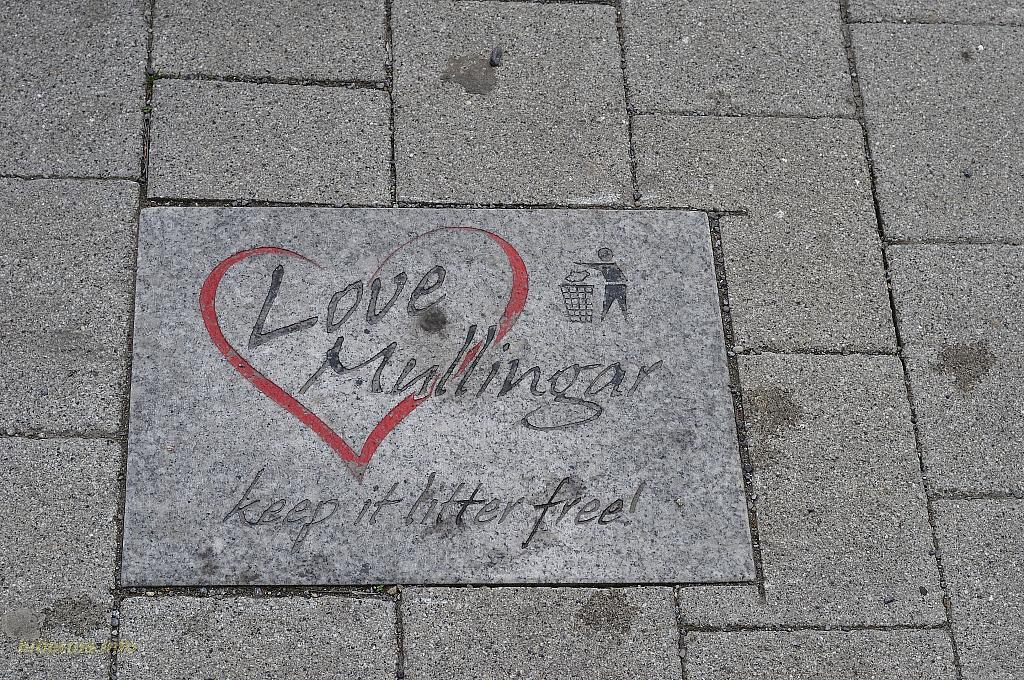 Love
Mullingar
keep it litter free!